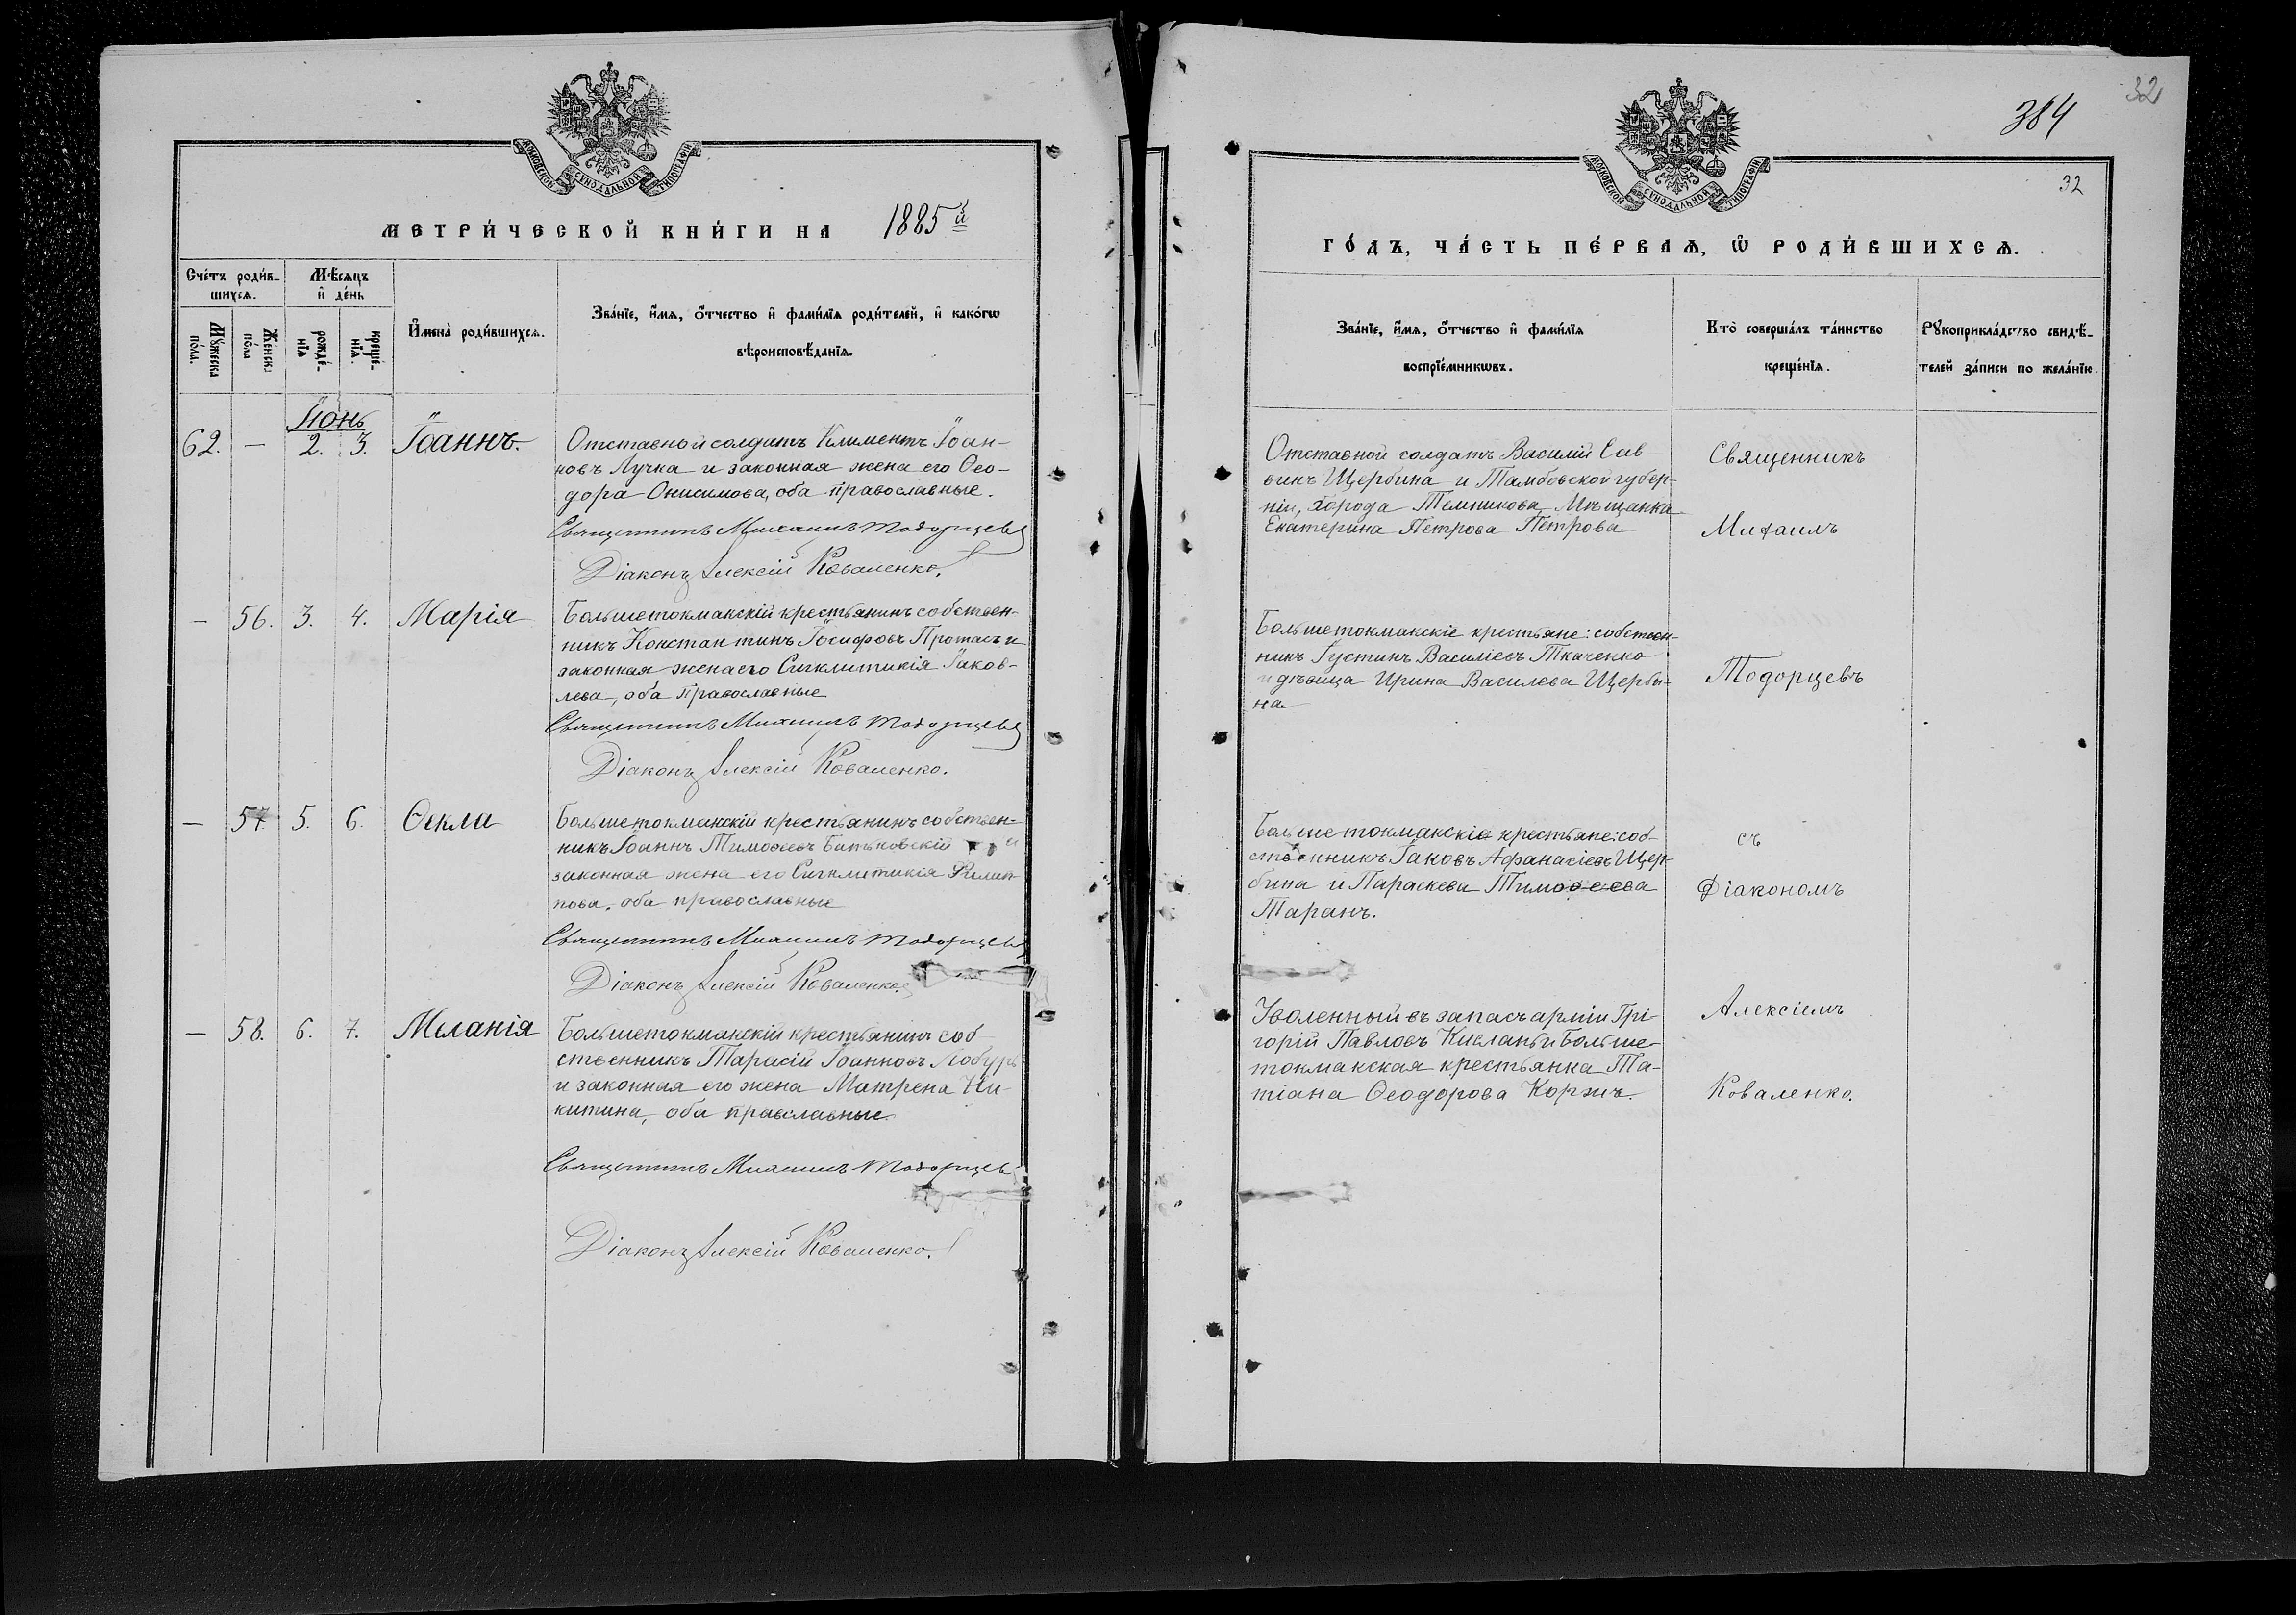 МОСКОВСКОЙ СУНОДАЛЬНОЙ ТИПОГРАФІИ
МЕТРИ́ЧЕСКОЙ КНИ́ГИ НА 1885й
Сче́тъ роди́в-
шихсѧ.
Мѣ́сѧцъ
и҆ де́нь
Мꙋ́жеска
по́ла.
Же́нска
по́ла
рожде́-
нїѧ
креще́-
нїѧ.
И҆мена̀ роди́вшихсѧ.
Зва́нїе, и҆́мѧ, ѻ҆́тчество и҆ фами́лїѧ роди́телей, и҆ како́гѡ
вѣроисповѣ́данїѧ.
Іюнь
62. — 2. 3. Іоаннъ.
Отставной солдатъ Климентъ Іоан-
новъ Лучка и законная жена его Ѳео-
дора Онисимова, оба православные.
Священникъ Михаилъ Тодорцевъ
Діаконъ Алексій Коваленко.
— 56. 3. 4. Марія
Большетокмакскій крестьянинъ собствен-
никъ Константинъ Іосифовъ Протасъ и
законная жена его Сигклитикія Іаков-
лева, оба православные
Священникъ Михаилъ Тодорцевъ
Діаконъ Алексій Коваленко.
— 57. 5. 6. Ѳекла
Большетокмакскій крестьянинъ собствен-
никъ Іоаннъ Тимоѳеевъ Батьковскій и
законная жена его Сигклитикія Филип-
пова, оба православные
Священникъ Михаилъ Тодорцевъ
Діаконъ Алексій Коваленко.
— 58. 6. 7. Меланія
Большетокмакскій крестьянинъ соб
ственникъ Тарасій Іоанновъ Лобуръ
и законная его жена Матрена Ни-
китина, оба правславные
Священникъ Михаилъ Тодорцев
Діаконъ Алексій Коваленко.
32
384
32
МОСКОВСКОЙ СУНОДАЛЬНОЙ ТИПОГРАФІИ
ГО́ДЪ, ЧА́СТЬ ПЕ́РВАѦ, Ѡ҆ РОДИ́ВШИХСѦ.
Зва́нїе, и҆́мѧ, ѻ҆́тчество и҆ фами́лїѧ
воспрїе́мникѡвъ.
Кто̀ соверша́лъ та́инство
креще́нїѧ.
Рꙋкоприкла́дство свидѣ́-
телей за́писи по жела́нїю.
Отставной солдатъ Василій Сав-
винъ Щербина и Тамбовской губер-
ніи, города Темникова Мѣщанка
Екатерина Петрова Петрова
Большетокмакскіе крестьяне: собствен-
никъ Іустинъ Василіевъ Ткаченко
и дѣвица Ирина Василева Щерби-
на
Большетокмакскіе крестьяне: соб-
ственникъ Іаковъ Афанасіевъ Щер-
бина и Параскева Тимоѳеева
Таранъ.
Уволенный въ запасъ арміи Грі-
горій Павловъ и Больше-
токмакская крестьянка Та-
тіана Ѳеодорова Коржъ.
Священникъ
Михаилъ
Тодорцевъ
съ
Діакономъ
Алексіемъ
Коваленко.